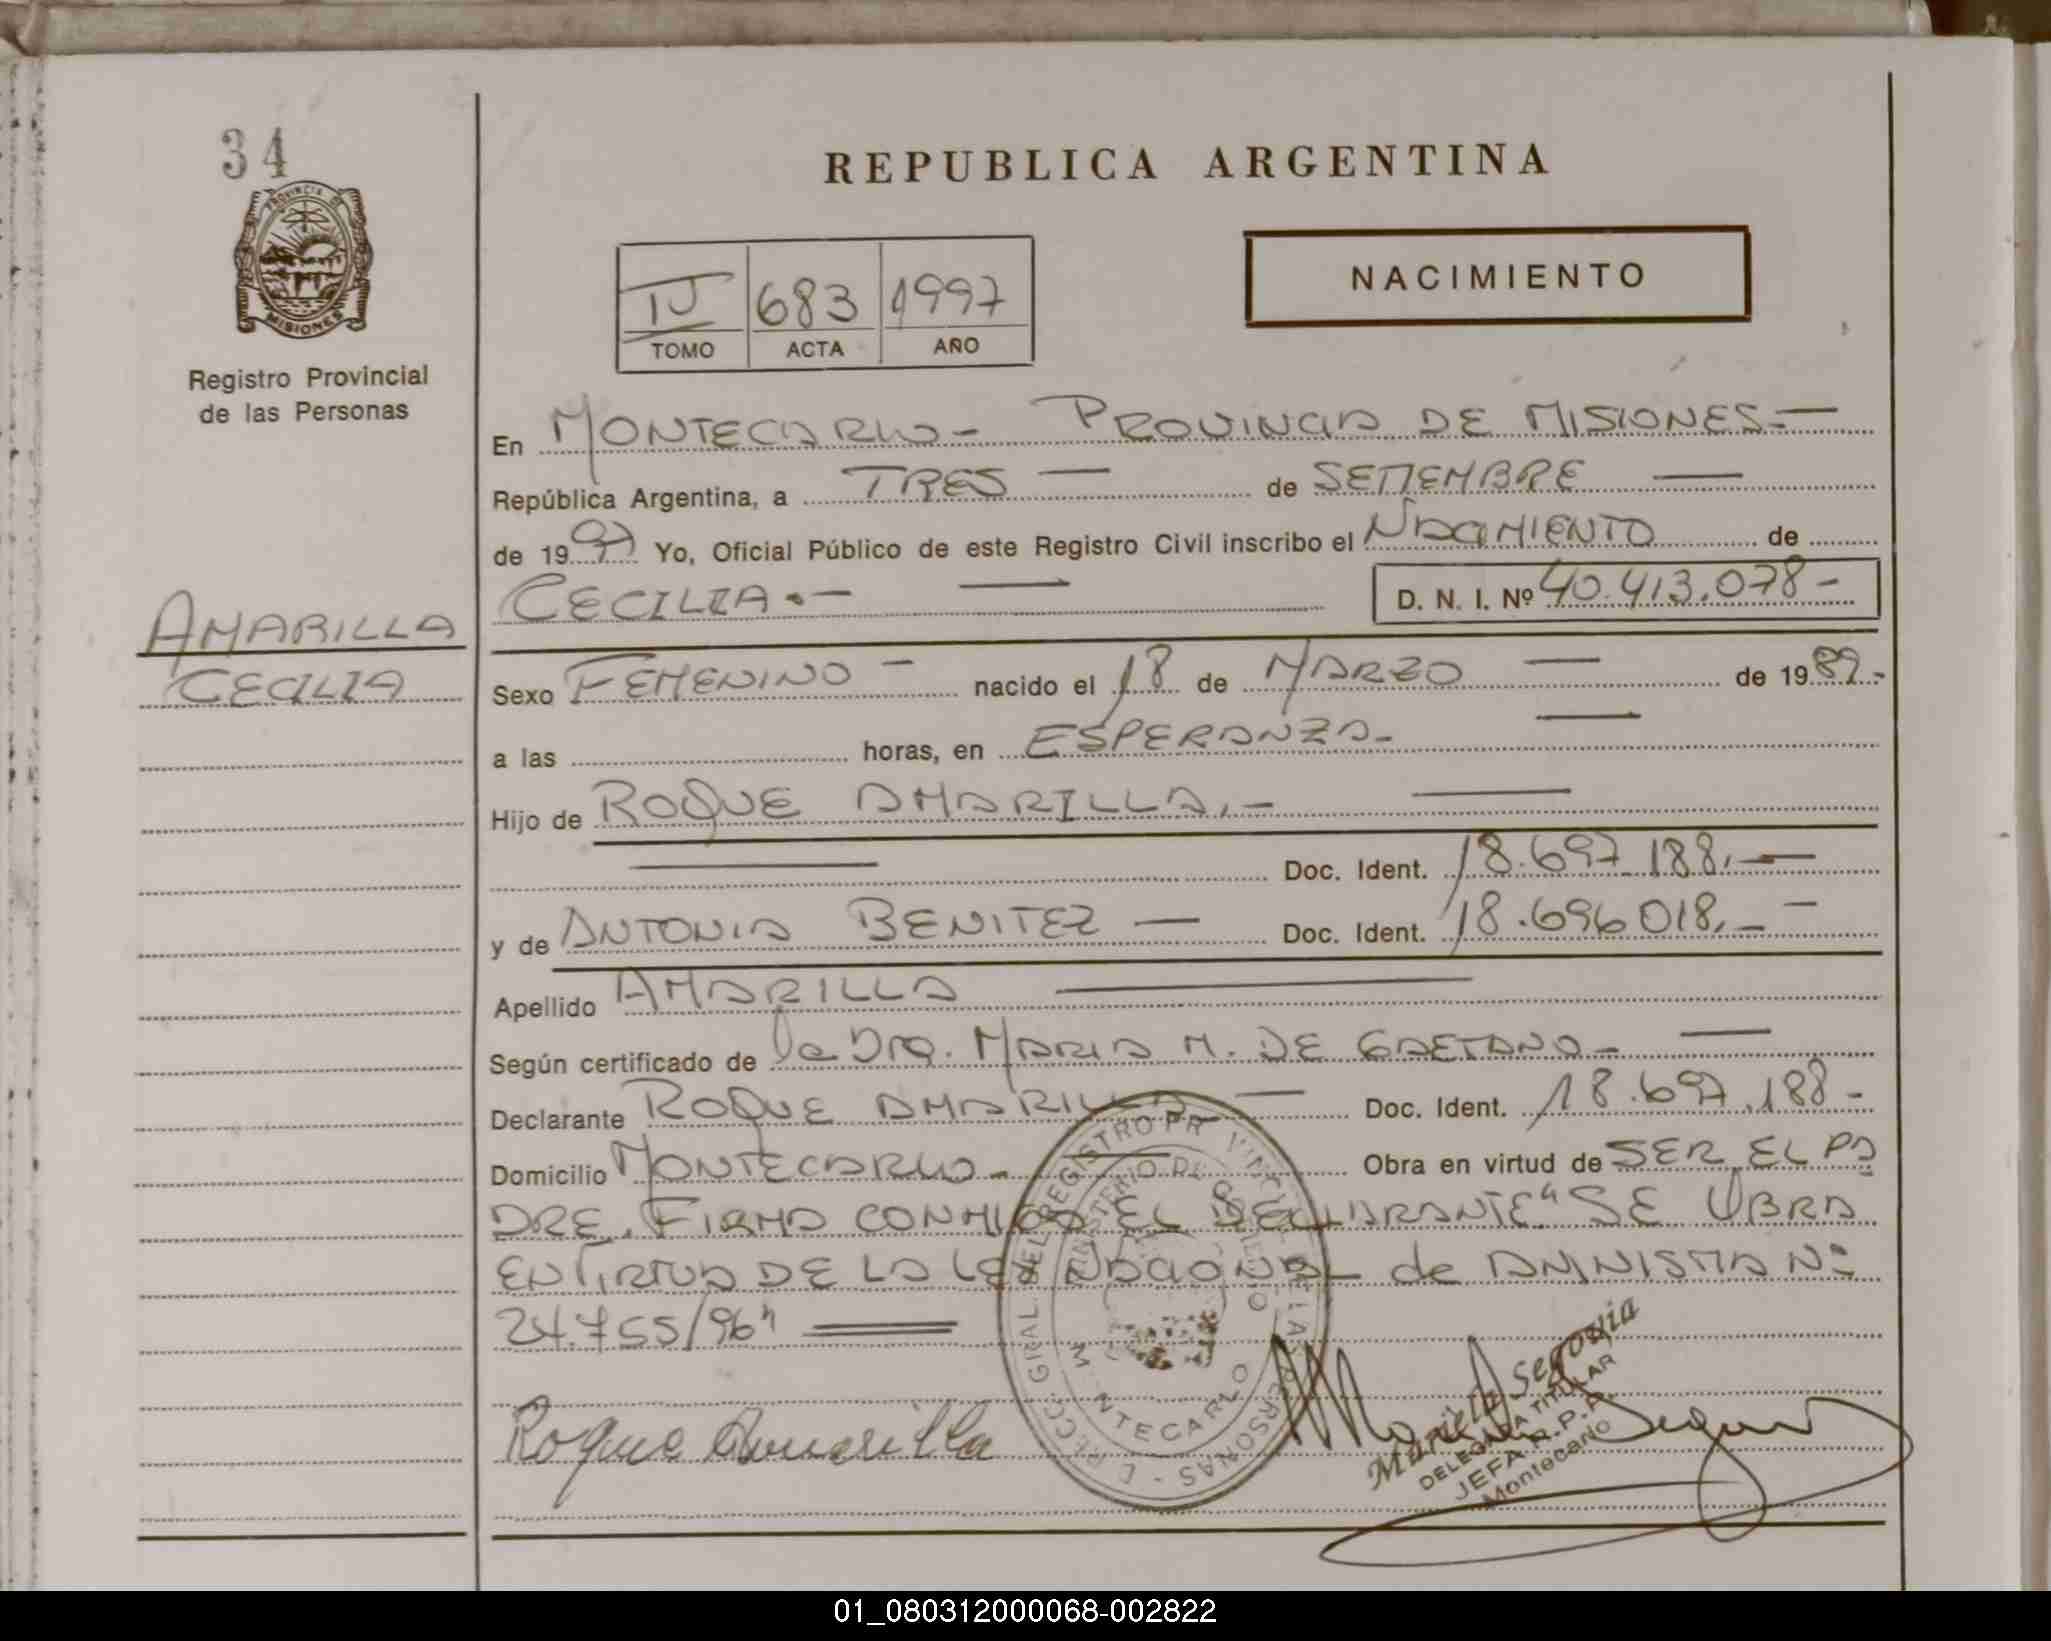 34
PROVINCIA DE
MISIONES
Registro Provincial
de las Personas
AMARILLA
CECILIA
REPUBLICA ARGENTINA
NACIMIENTO
683 1997
TOMO ACTA AÑO
En MONTECARLO - PROVINCIA DE MISIONES. —
República Argentina, a TRES — de SETIEMBRE —
de 1997 Yo, Oficial Público de este Registro Civil inscribo el NACIMIENTO de
CECILIA. — — D. N. I. Nº 40.413.078 -
Sexo FEMENINO - nacido el 18 de MARZO — de 1989.-
a las horas, en ESPERANZA. —
Hijo de ROQUE AMARILLA. - —
— Doc. Ident. 18.697.188. —
y de ANTONIA BENITEZ — Doc. Ident. 18.696.018. —
Apellido AMARILLA —
Según certificado de la Dra. MARIA M. DE GAETANO - —
Declarante ROQUE AMARILLA — Doc. Ident. 18.697.188 -
Domicilio MONTECARLO - Obra en virtud de SER EL PA
DRE. FIRMA CONMIGO EL DECLARANTE "SE OBRA
EN VIRTUD DE LA LEY NACIONAL de AMNISTIA Nº
24.755/96"
Roque Amarilla
MONTECARLO
Segovia
DELEGADA TITULAR
JEFA R.P.P.
Montecarlo
01_080312000068-002822